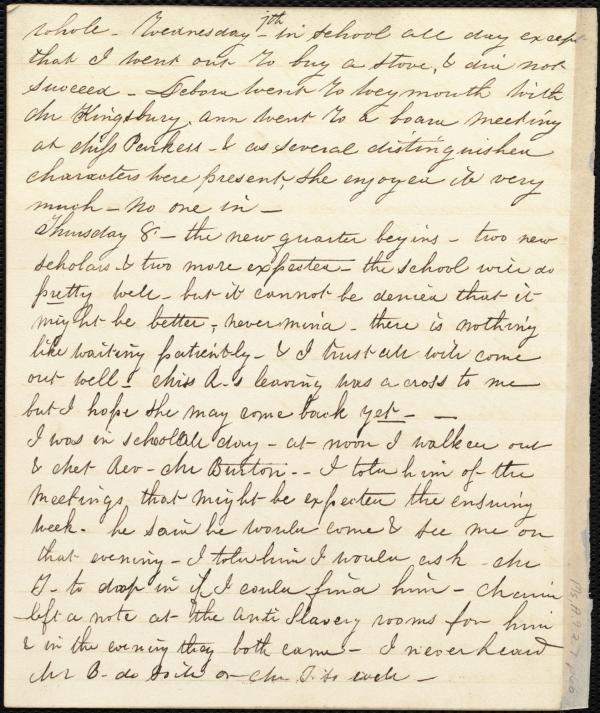 whole - Wednesday 7th - in school all day except
that I went out to buy a stove, & did not
succeed - Debora went to Weymouth with
Mr Kingsbury. Ann went to a board meeting
at Miss Parkers - & as several distinguished
characters were present, she enjoyed it very
much - no one in -
Thursday 8. - the new quarter begins - two new
scholars & two more expected - the school will do
pretty well - but it cannot be denied that it
might be better, nevermind - there is nothing
like waiting patiently - & I trust all will come
out well - Miss A-s leaving was a cross to me
but I hope she may come back yet - -
I was in school all day - at noon I walked out
& met Rev - Mr Burton - - I told him of the
meetings that might be expected the ensuing
week - he said he would come & see me on
that evening - I told him I would ask Mr
T- to drop in if I could find him -
left a note at the Anti Slavery rooms for him
& in the evening they both came - I never heard
Mr B- do so well or Mr T. so well -
Ms. A 9.2.7 p 60